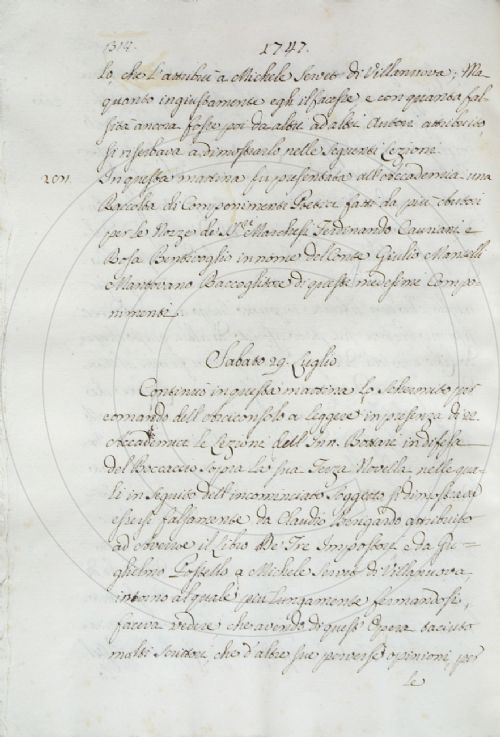 1747.
lo, che l'attribuì à Michele Servet di Villanuova; Ma
quanto ingiustamente egli il facesse, e con quanta fal-
sità ancora fosse poi da altri ad altri Autori attribuito
si riserbava a dimostrarlo nelle seguenti Lezioni.
In questa mattina fu presentata all'Accademia una
Raccolta di Componimenti Poetici fatti da più Autori
per le Nozze de' Marchesi Ferdinando e
Rosa Bentivoglio in nome del Conte Giulio
Mantovano Raccoglitore di questi medesimi Compo-
nimenti.
Sabato 29. Luglio.
Continuò in questa mattina lo Schermito per
comando dell'Arciconsolo a leggere in presenza di
Accademici le Lezione dell'Inn. Bottari in difesa
del Boccaccio sopra la sua Terza Novella nelle qua-
li in seguito dell'incominciato Soggetto si dimostra ad
essersi falsamente da Claudio attribuito
ad il Libro de' Tre Impostori, e da Gu-
glielmo Postello a Michele Servet di Villanuova,
intorno al quale più lungamente fermandosi,
faceva vedere, che avendo di quest'Opera taciuto
molti Scrittori, che d'altre sue perverse opinioni, per
le